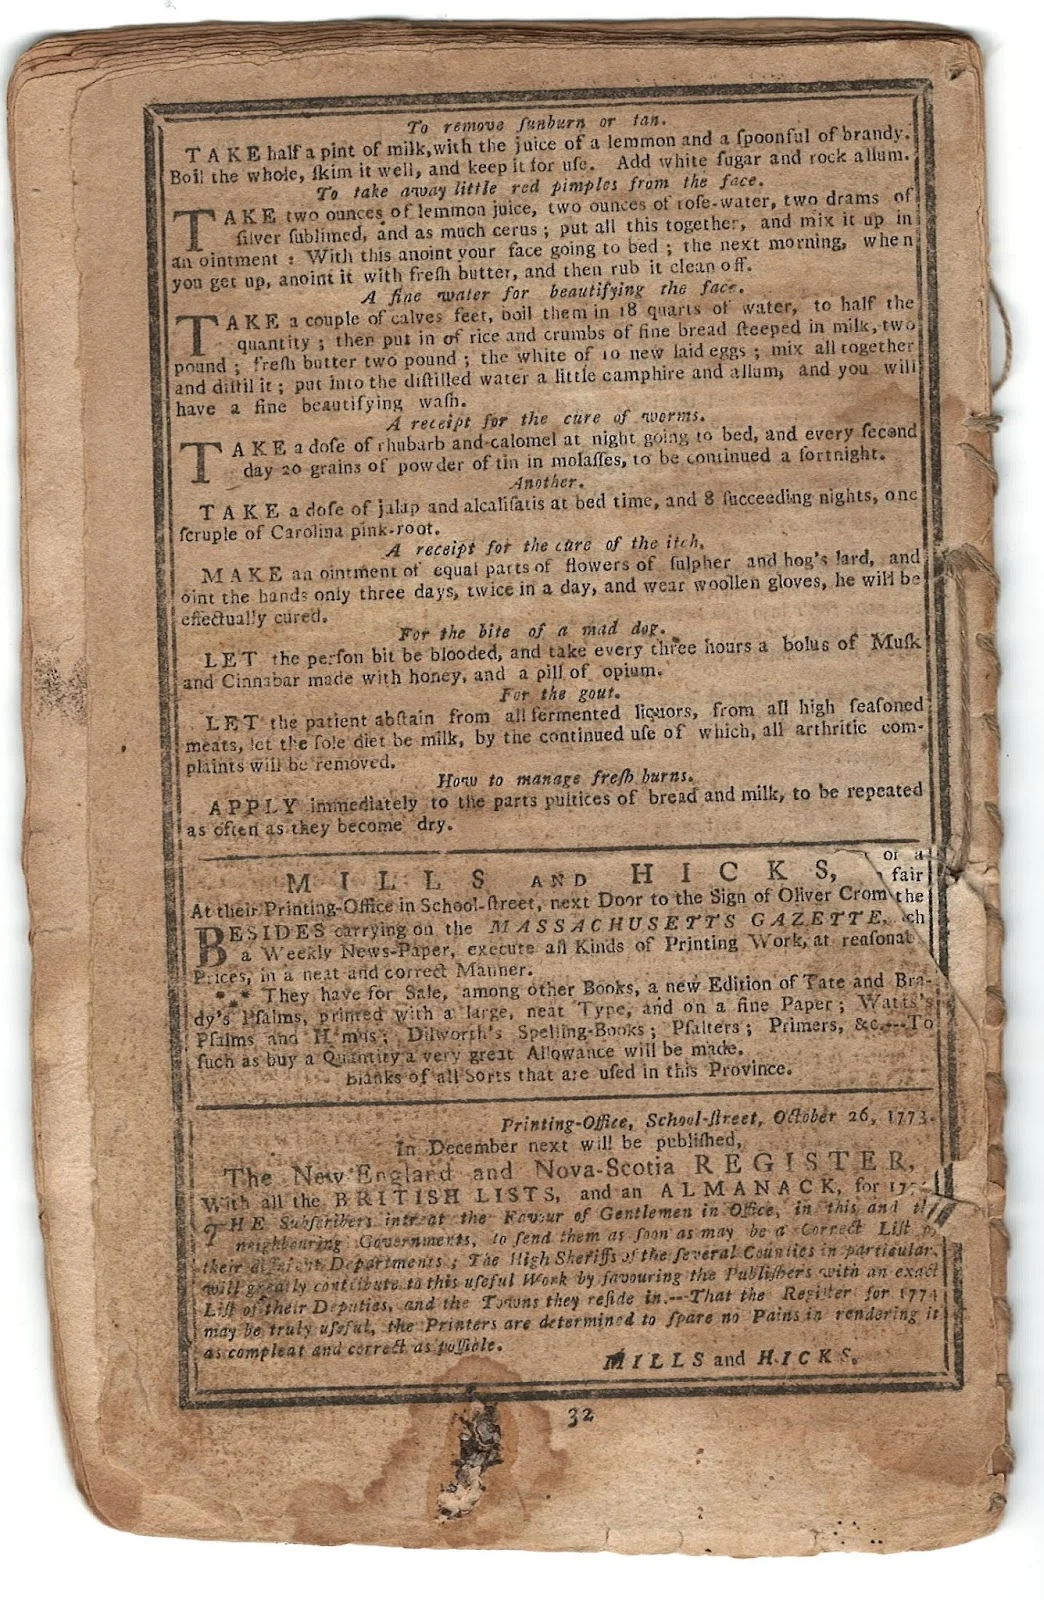 To remove ſunburn or tan.
TAKE half a pint of milk, with the juice of a lemmon and a ſpoonful of brandy.
Boil the whole, ſkim it well, and keep it for uſe. Add white ſugar and rock allum.
To take away little red pimples from the face.
TAKE two ounces of lemmon juice, two ounces of roſe-water, two drams of
ſilver ſublimed, and as much cerus; put all this together, and mix it up in
an ointment: With this anoint your face going to bed; the next morning, when
you get up, anoint it with freſh butter, and then rub it clean off.
A fine water for beautifying the face.
TAKE a couple of calves feet, boil them in 18 quarts of water, to half the
quantity; then put in of rice and crumbs of fine bread ſteeped in milk, two
pound; freſh butter two pound; the white of 10 new laid eggs; mix all together
and diſtil it; put into the diſtilled water a little camphire and allum, and you will
have a fine beautifying waſh.
A receipt for the cure of worms.
TAKE a doſe of rhubarb and calomel at night going to bed, and every ſecond
day 20 grains of powder of tin in molaſſes, to be continued a fortnight.
Another.
TAKE a doſe of jalap and alcaliſatis at bed time, and 8 ſucceeding nights, one
ſcruple of Carolina pink-root.
A receipt for the cure of the itch.
MAKE an ointment of equal parts of flowers of ſulpher and hog's lard, and
oint the hands only three days, twice in a day, and wear woollen gloves, he will be
effectually cured.
For the bite of a mad dog.
LET the perſon bit be blooded, and take every three hours a bolus of Muſk
and Cinnabar made with honey, and a pill of opium.
For the gout.
LET the patient abſtain from all fermented liquors, from all high ſeaſoned
meats, let the ſole diet be milk, by the continued uſe of which, all arthritic com-
plaints will be removed.
How to manage freſh burns.
APPLY immediately to the parts pultices of bread and milk, to be repeated
as often as they become dry.
or a
MILLS AND HICKS, fair
At their Printing-Office in School-ſtreet, next Door to the Sign of Oliver Crom the
BESIDES carrying on the MASSACHUSETTS GAZETTE, ch
a Weekly News-Paper, execute all Kinds of Printing Work, at reaſonab
Prices, in a neat and correct Manner.
*** They have for Sale, among other Books, a new Edition of Tate and Bra-
dy's Pſalms, printed with a large, neat Type, and on a fine Paper; Watts's
Pſalms and Hymns; Dilworth's Spelling-Books; Pſalters; Primers, &c.---To
ſuch as buy a Quantity a very great Allowance will be made.
Blanks of all Sorts that are uſed in this Province.
Printing-Office, School-ſtreet, October 26, 1773.
In December next will be publiſhed,
The New-England and Nova-Scotia REGISTER,
With all the BRITISH LISTS, and an ALMANACK, for 177
THE Subſcribers intreat the Favour of Gentlemen in Office, in this and the
neighbouring Governments, to ſend them as ſoon as may be a Correct Liſt of
their different Departments; The High Sheriffs of the ſeveral Counties in particular,
will greatly contribute to this uſeful Work by favouring the Publiſhers with an exact
Liſt of their Deputies, and the Towns they reſide in.---That the Regiſter for 1774
may be truly uſeful, the Printers are determined to ſpare no Pains in rendering it
as compleat and correct as poſſible.
MILLS and HICKS.
32